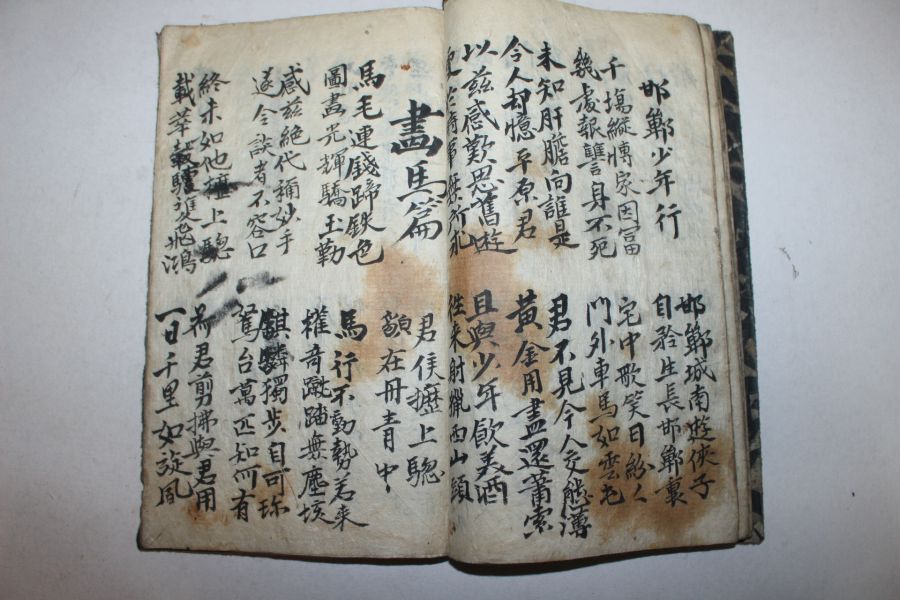 邯鄲少年行
邯鄲城南遊俠子
自矜生長邯鄲裏
千塲縱愽家因富
幾處報讐身不死
宅中歌笑日紛〻
門外車馬如雲屯
未知肝膽向誰是
令人却憶平原君
君不見今人交態薄
黃金用盡還蕭索
以茲感歎思舊遊
更於時事無所求
且與少年飮美酒
徃來射獵西山頭
畵馬篇
君侯櫪上驄
貌在丹青中
馬毛連錢蹄鉄色
圖畵光輝驕玉勒
馬行不動勢若来
權奇蹴踏無塵埃
感兹絶代稱妙手
遂令談者不容口
麒麟獨步自可珎
駑台萬匹知何有
終未如他櫪上驄
載華轂飛鴻
荷君剪拂與君用
一日千里如旋風